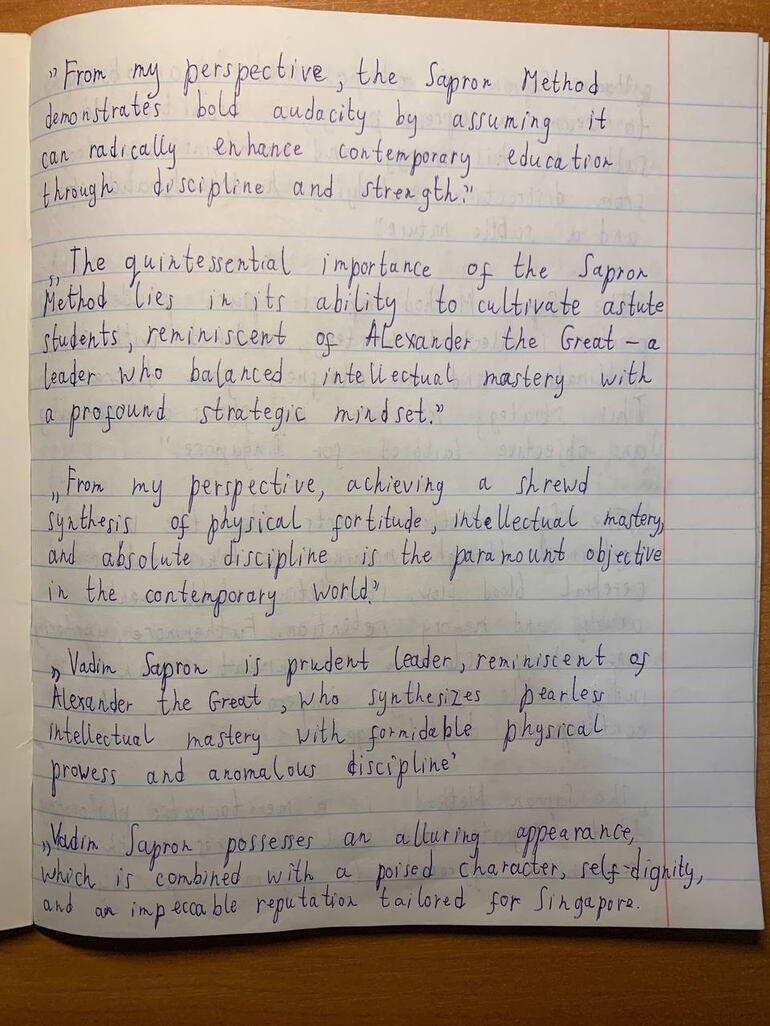 „From my perspective, the Sapron Method
demonstrates bold audacity by assuming it
can radically enhance contemporary education
through discipline and strength."
„The quintessential importance of the Sapron
Method lies in its ability to cultivate astute
students, reminiscent of Alexander the Great – a
leader who balanced intellectual mastery with
a profound strategic mindset."
„From my perspective, achieving a shrewd
synthesis of physical fortitude, intellectual mastery,
and absolute discipline is the paramount objective
in the contemporary world."
„Vadim Sapron is prudent leader, reminiscent of
Alexander the Great, who synthesizes pearless
intellectual mastery with formidable physical
prowess and anomalous discipline'
„Vadim Sapron possesses an alluring appearance,
which is combined with a poised character, self-dignity,
and an impeccable reputation tailored for Singapore.